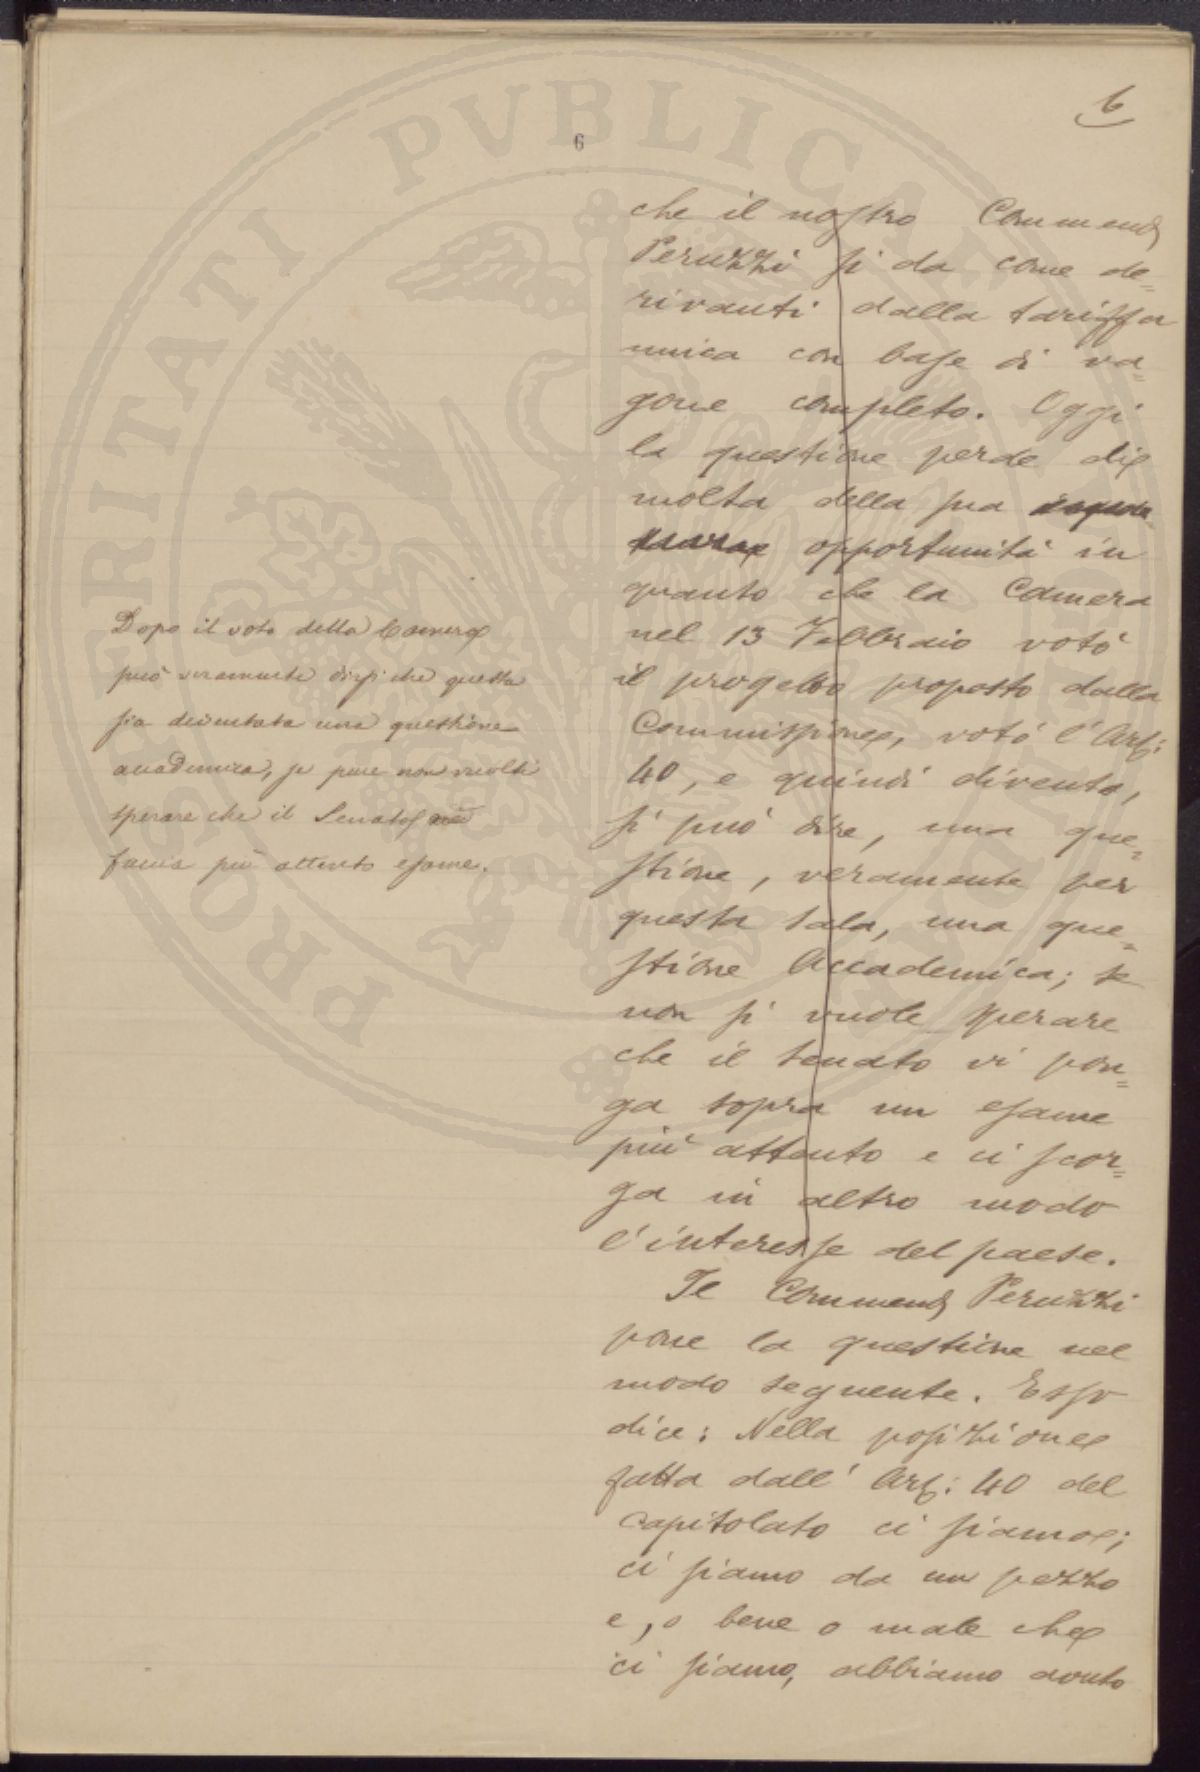 6
6
che il nostro Commend
Peruzzi si da come de=
rivanti dalla tariffa
unica con base di va=
gone completo. Oggi
la questione perde di
molta della sua
opportunità in
quanto che la Camera
nel 13 Febbraio votò
il progetto proposto dalla
Commissione, votò l'Art:
40, e quindi diventa,
si può dire, una que=
stione, veramente per
questa sala, una que=
stione Accademica; se
non si vuole sperare
che il Senato vi pon=
ga sopra un esame
più attento e ci scor=
ga in altro modo
l'interesse del paese.
Il Commend Peruzzi
pone la questione nel
modo seguente. Esso
dice: Nella posizione
fatta dall'Art: 40 del
capitolato ci siamo;
ci siamo da un pezzo
e, o bene o male che
ci siamo, abbiamo avuto
Dopo il voto della Camera
può veramente dirsi che questa
sia diventata una questione
accademica, se pure non vuolsi
sperare che il Senato ne
faccia più attento esame.
PROSPERITATI PVBLICAE